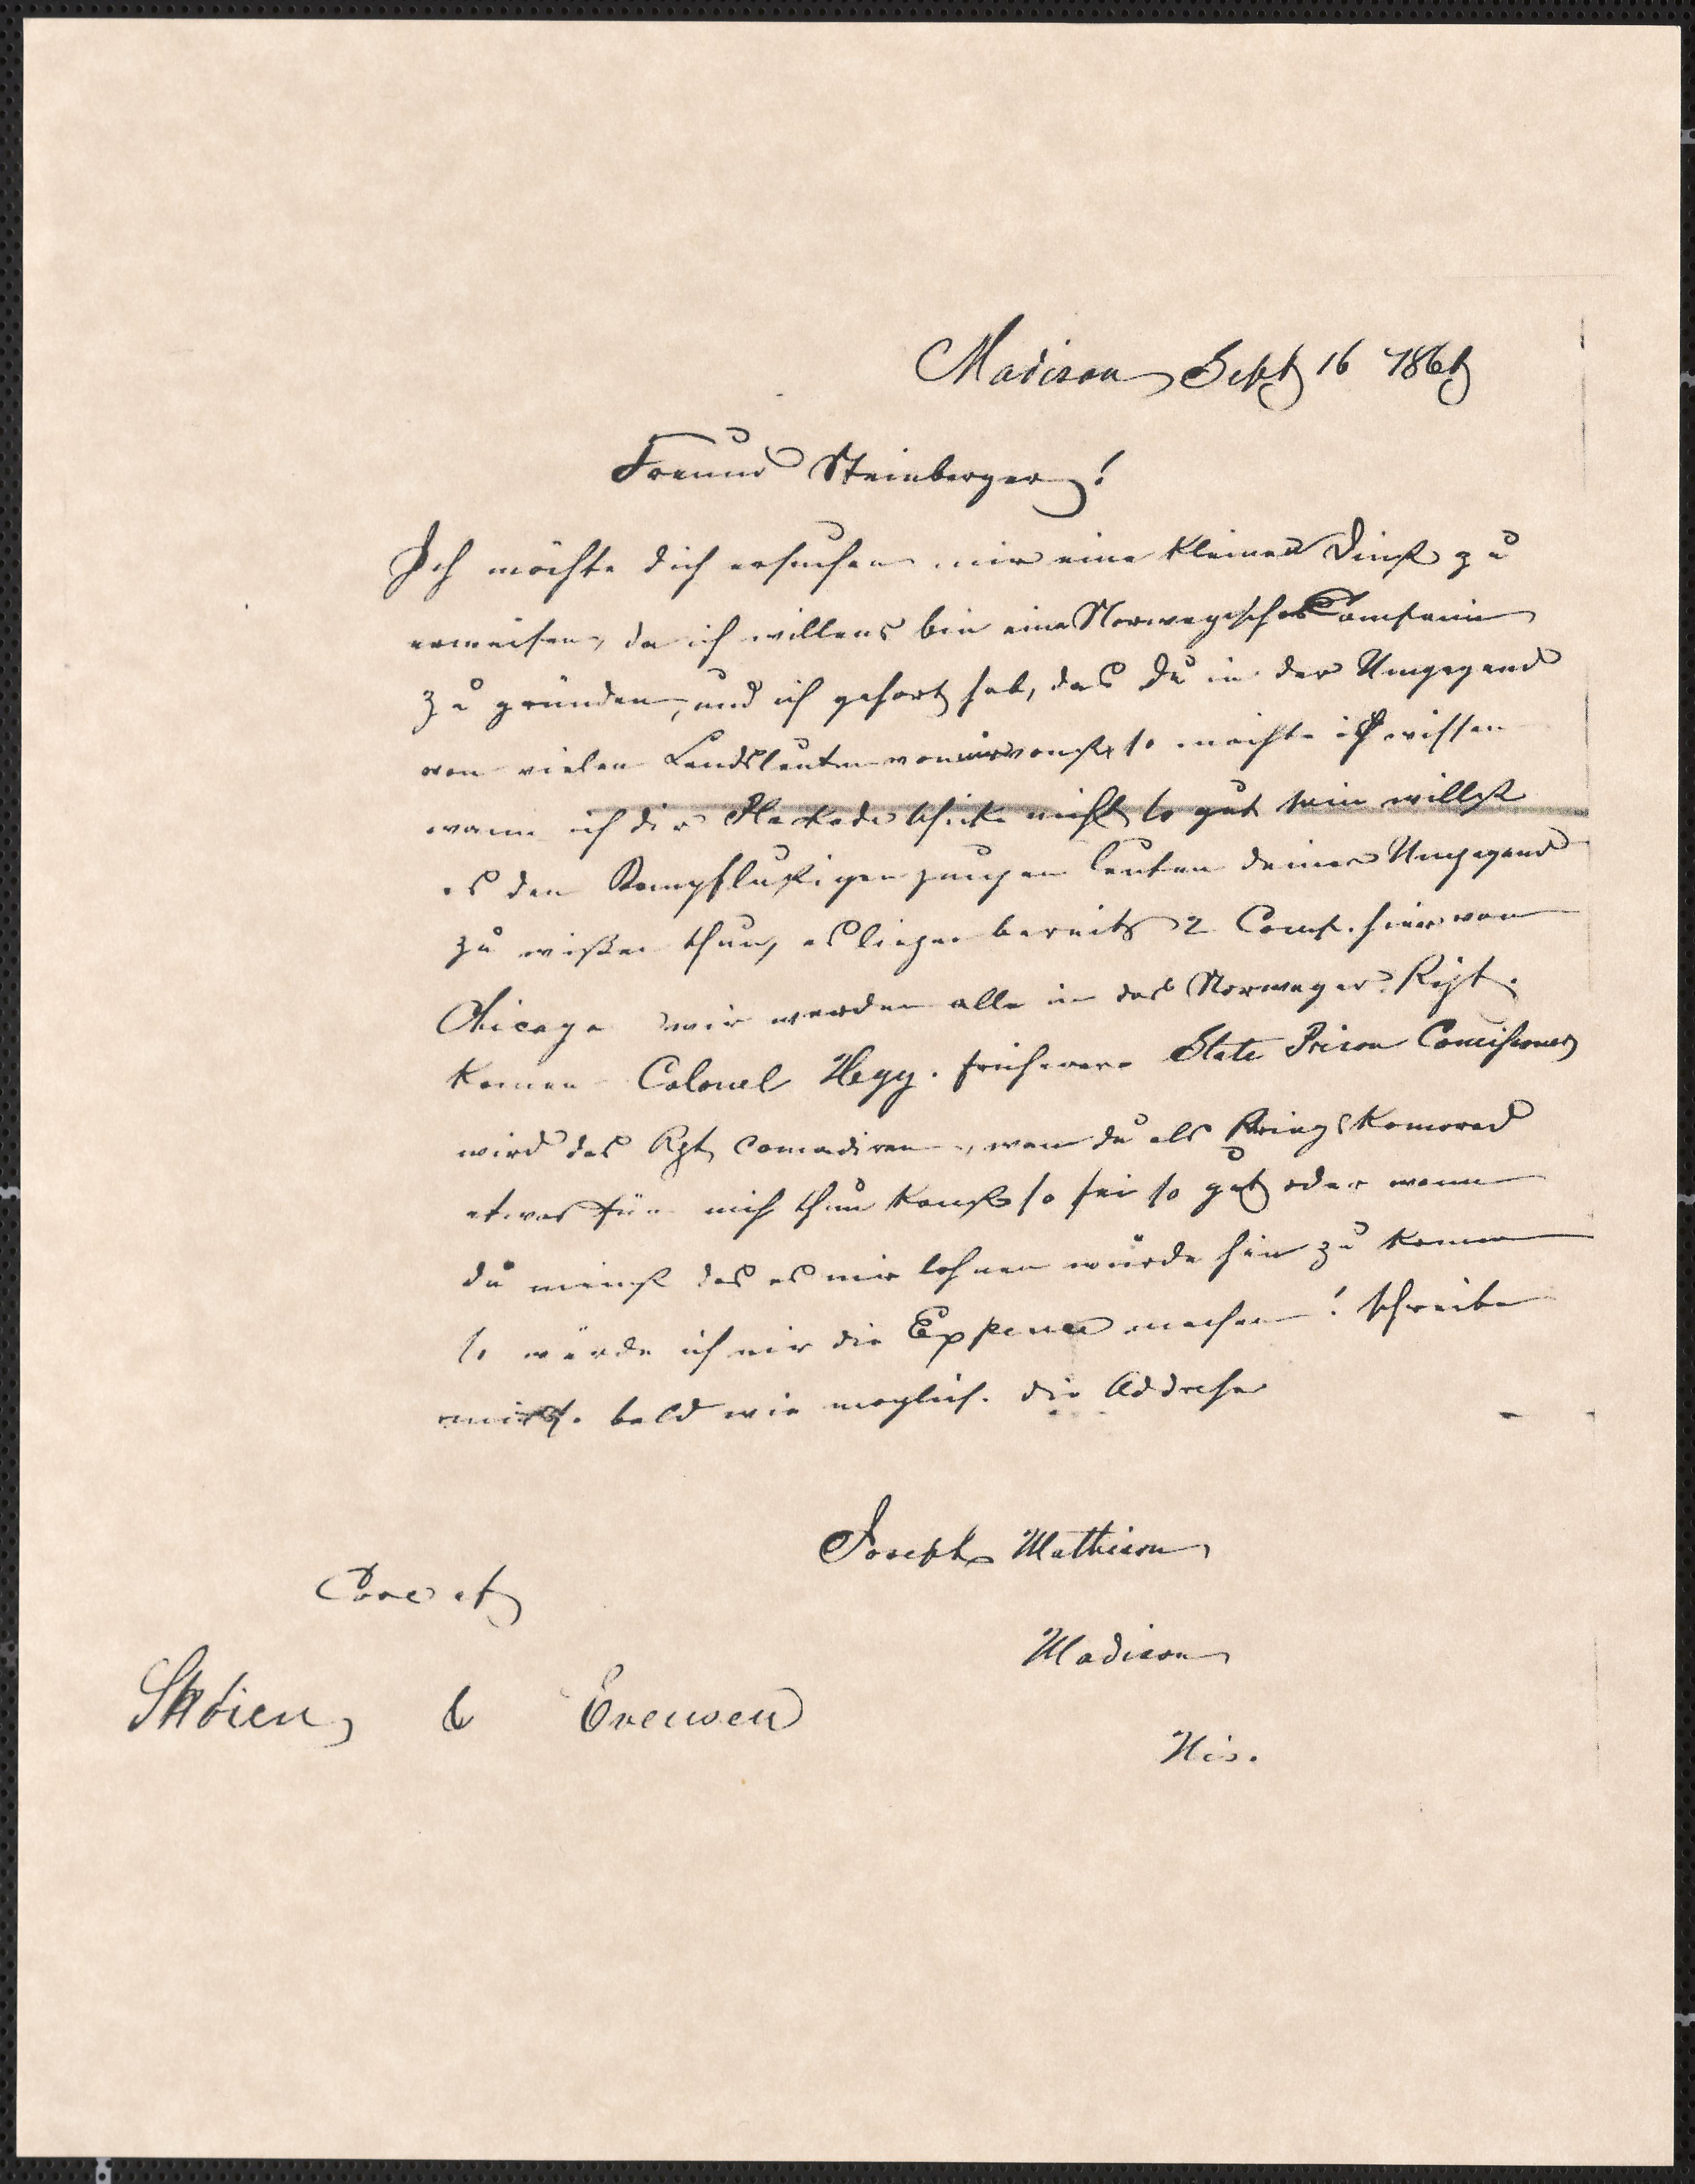 Madison Sept 16 1861
Freund Steinberger!
Ich möchte dich ersuchen mir eine kleinen Dinst zu
erweisen, da ich willens bin eine Norwegische Companie
zu gründen, und ich gehort hab, das Du in der Umgegend
von vielen Landsleuten von mir wonst, so möchte ich wissen
wann ich dir Plackade schicke nicht so gut sein willst
es den Kampflustigen jungen leuten deiner Umgegend
zu wißen thun, es liegen bereits 2 Comp. hier von
Chicago wir werden alle in das Norweger Rgt.
komen Colonel Hegg. früherer State Prison Comissioner
wird das Rgt comadiren, wen du als Kriegskamerad
etwas für mich thun kanst so sei so gut oder wenn
du meinst das es mir lohnen würde hin zu komen
so würde ich mir die Expence machen! schreibe
mir so bald wie moglich. die Addresse
Joseph Mathieson
Care of
Madison
Skoien & Evensen
Wis.